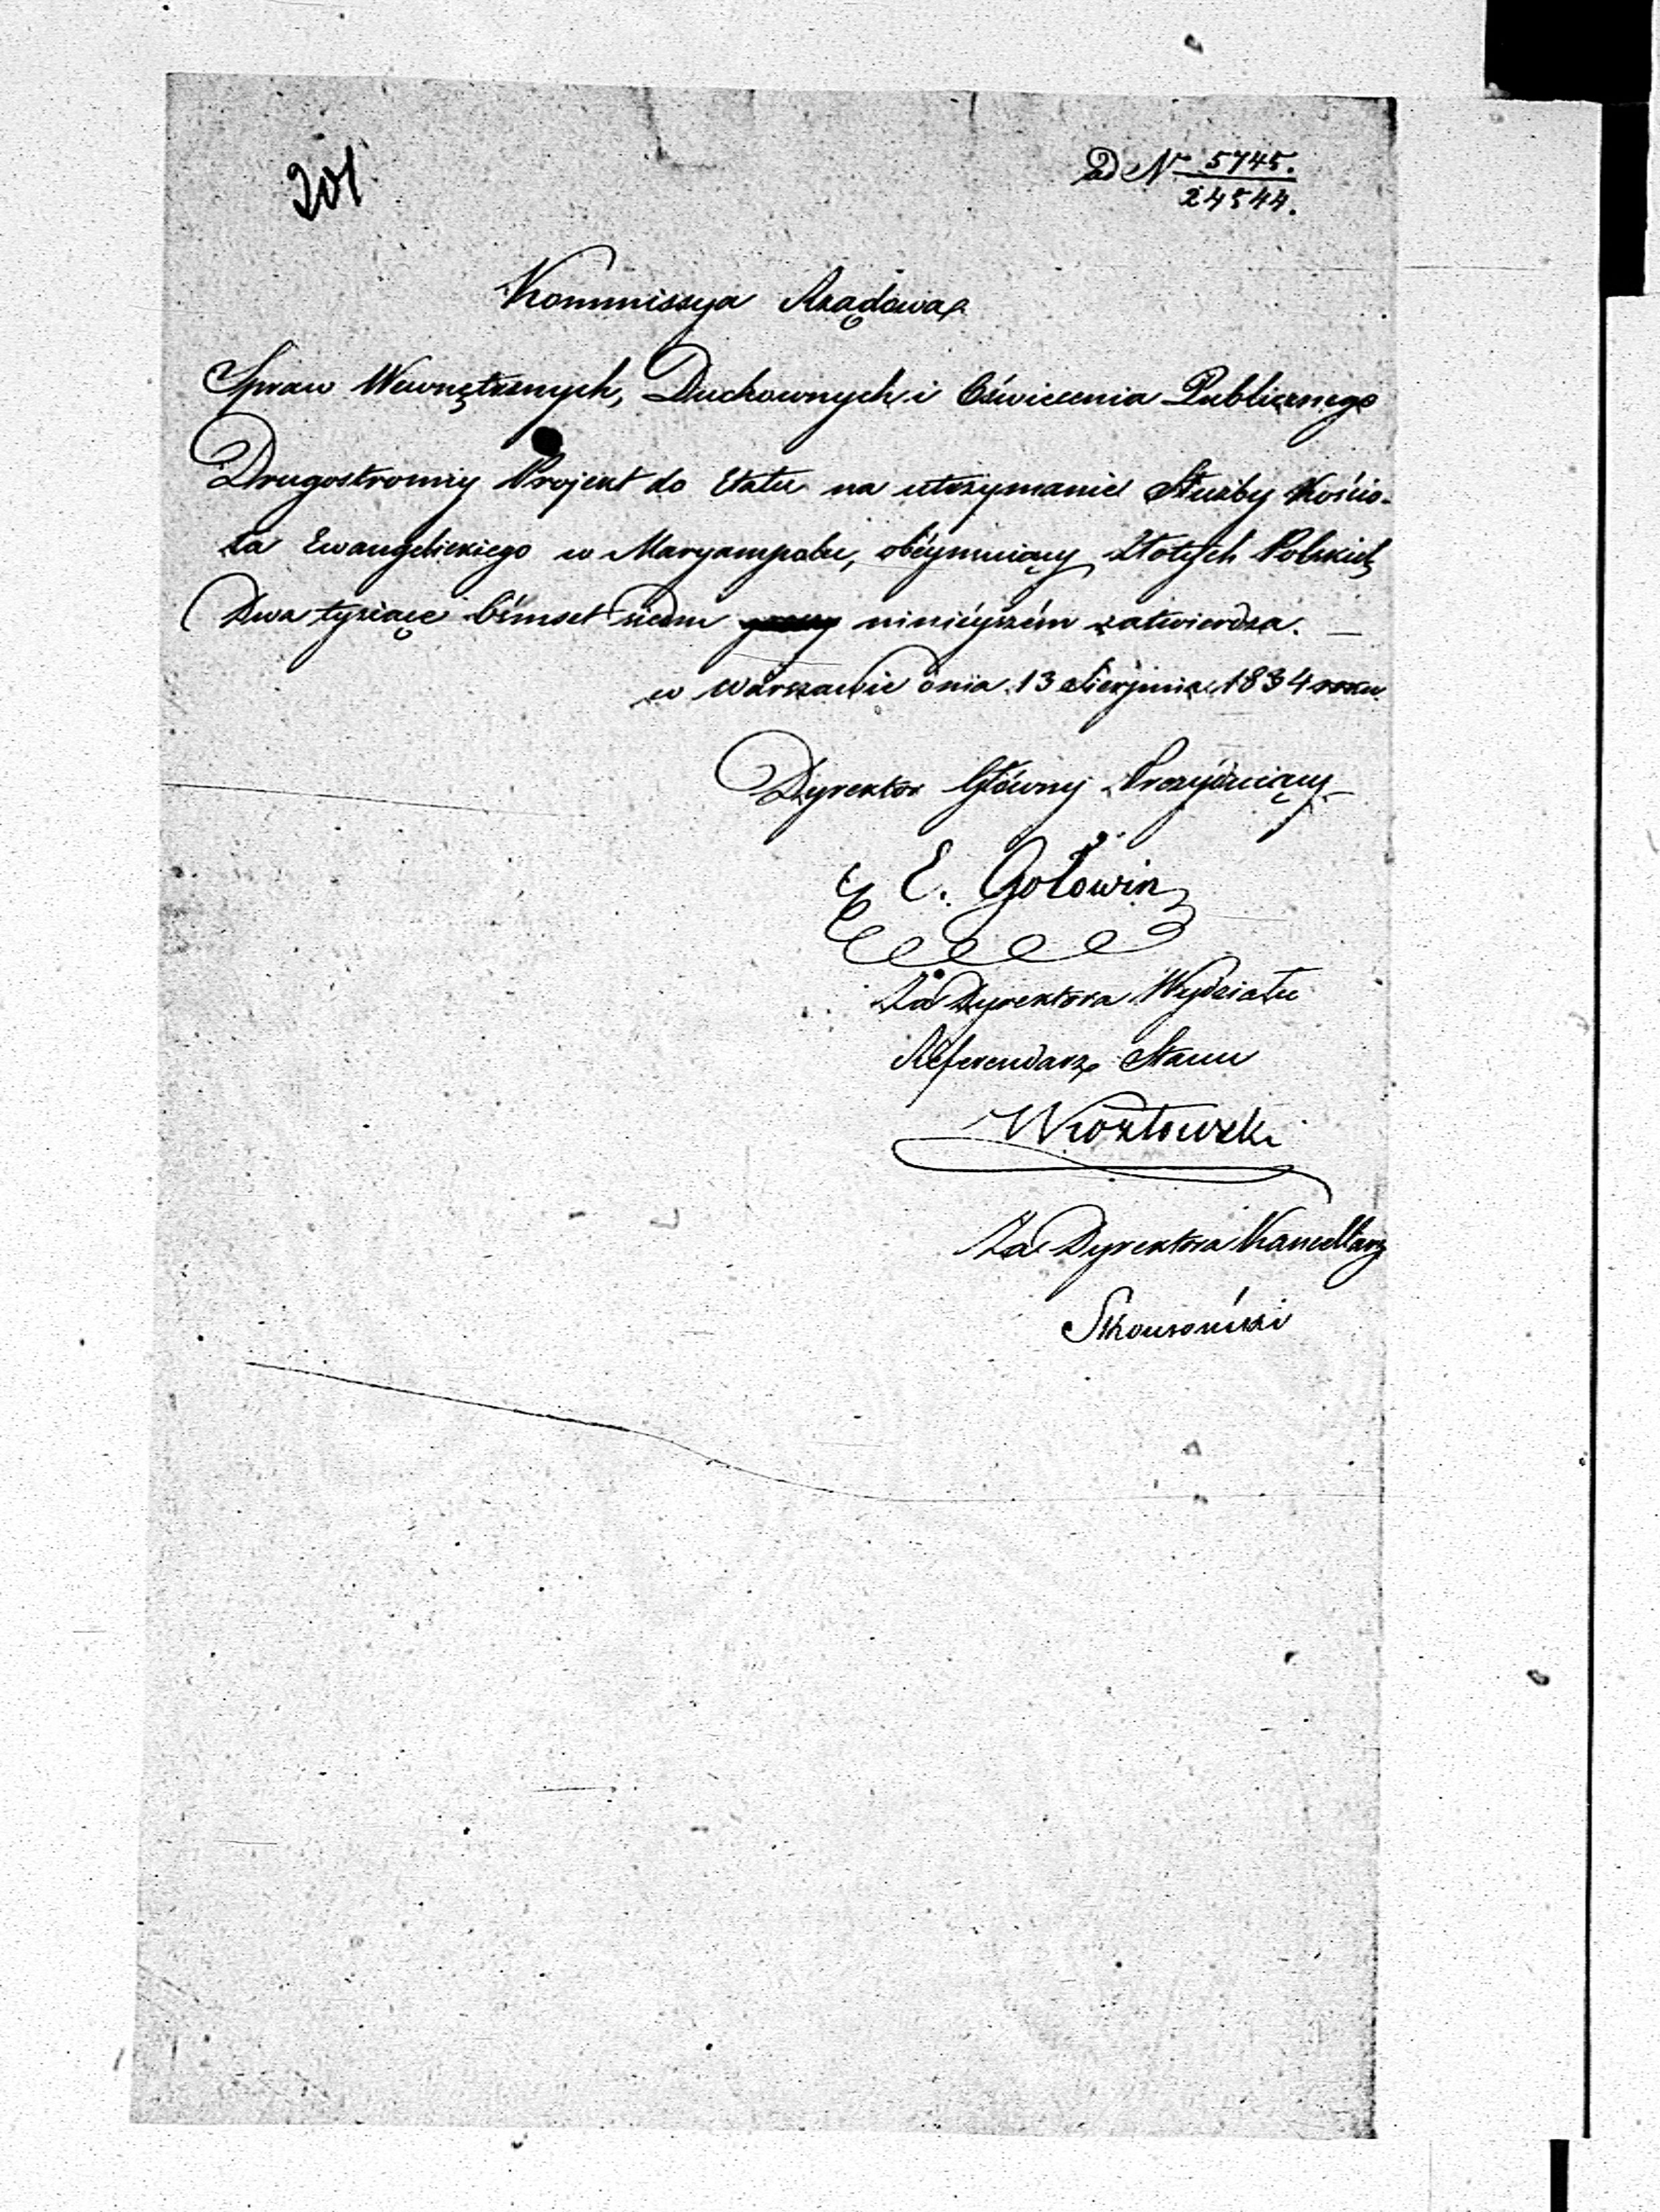 201
Ad N 5745.
24544.
Kommissya Rządowa
Spraw Wewnętrznych, Duchownych i Oświecenia Publicznego
Drugostronny Projekt do Etatu na utrzymanie Służby Kościo-
ła Ewangelickiego w Maryampolu, obéymuiący Złotych Polskich
Dwa tysiące Ośmset siedm ninieyszém zatwierdza.
w Warszawie dnia 13 Sierpnia 1834 roku
Dyrektor Główny Prezyduiący
E. Gołowin
Za Dyrektora Wydziału
Referendarz Stanu
Za Dyrektora Kancellarz